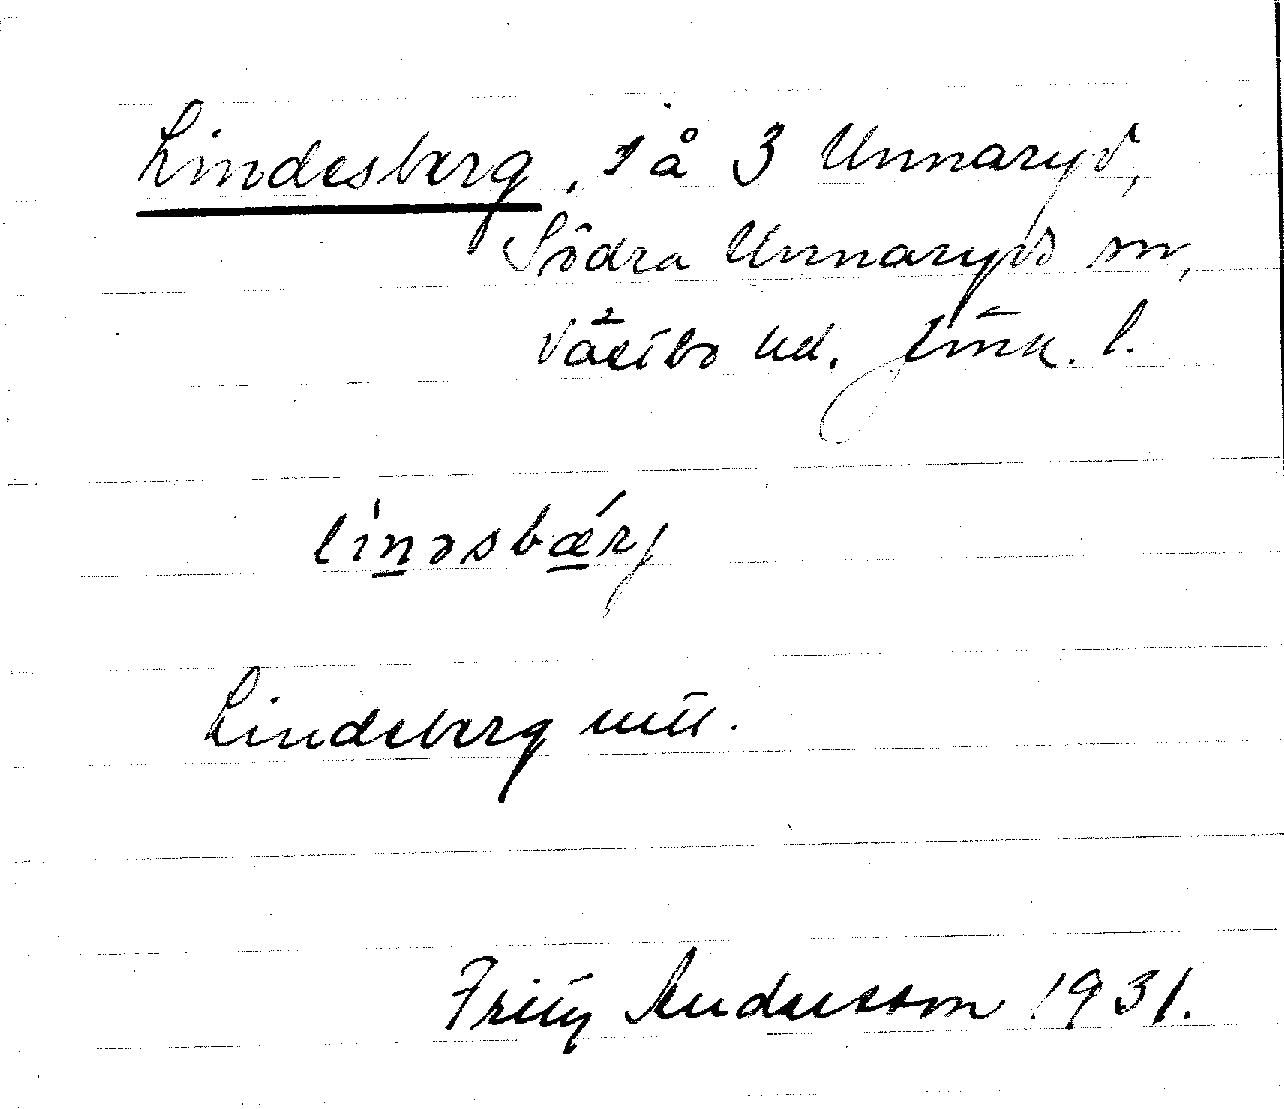 Lindesberg, 1 å 3 Unnaryd,
Södra Unnaryds sn,
Västbo hd. Jönk. l.
li̍n̠əsbǽ̠rj
Lindeberg utt.
Fritz Andersson 1931.